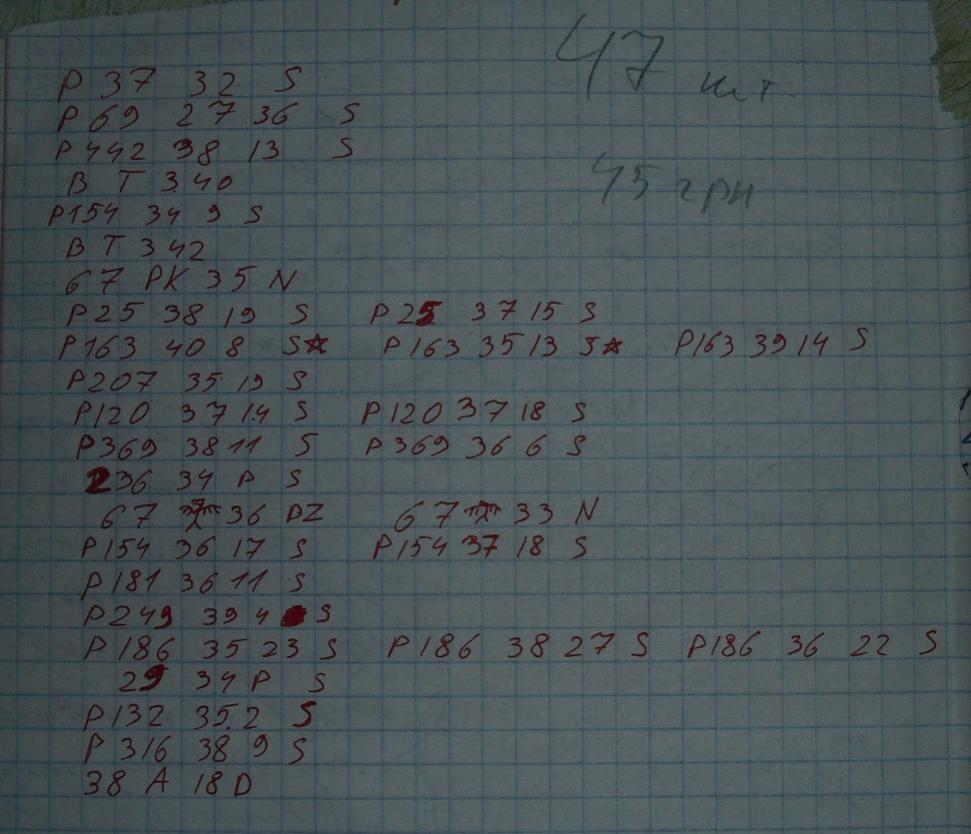 47 шт.
45 грн
P 37 32 S
P 69 27 36 S
P 442 38 13 S
B T 3 40
P154 34 9 S
B T 3 42
67 PK 35 N
P25 38 19 S P25 37 15 S
P163 40 8 S☆ P163 35 13 S☆ P163 39 14 S
P207 35 19 S
P120 37 14 S P120 37 18 S
P369 38 11 S P369 36 6 S
236 34 P S
67 36 DZ 67 33 N
P154 36 17 S P154 37 18 S
P181 36 11 S
P249 39 4 S
P186 35 23 S P186 38 27 S P186 36 22 S
29 34 P S
P132 35.2 S
P 316 38 9 S
38 A 18 D